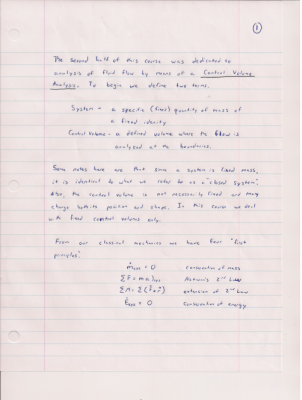 ①
The second half of this course was dedicated to
analysis of fluid flow by means of a Control Volume
Analysis. To begin we define two terms.
System - a specific (fixed) quantity of mass of
a fixed identity
Control Volume - a defined volume where the flow is
analyzed at the boundaries.
Some notes here are that since a system is fixed mass,
it is identical to what we refer to as a "closed system".
Also, the control volume is not necessarily fixed and may
change both its position and shape. In this course we deal
with fixed control volumes only.
From our classical mechanics we have four "first
principles".
ṁsys = 0 conservation of mass
ΣF = ma)sys Newton's 2nd Law
ΣM = Σ(r̄×F̄) extension of 2nd Law
Ėsys = 0 conservation of energy